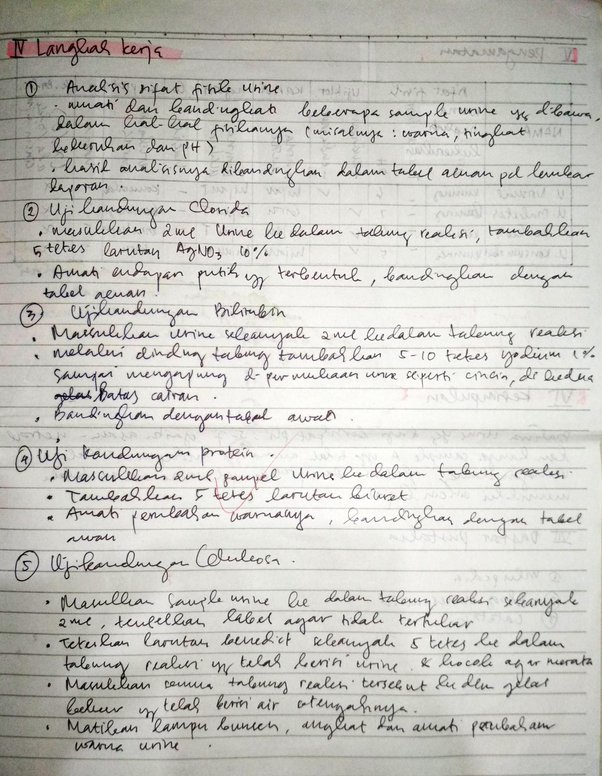 IV Langkah kerja
① Analisis sifat fisik urine
· amati dan bandingkan beberapa sample urine yg dibawa,
dalam hal-hal fisiknya (misalnya : warna, tingkat
kekeruhan dan PH)
· hasil analisisnya dibandingkan dalam tabel acuan pd lembar
laporan
② Uji kandungan Clorida
• masukkan 2ml urine ke dalam tabung reaksi, tambahkan
5 tetes larutan AgNO3 10%
• Amati endapan putih yg terbentuk, bandingkan dengan
tabel acuan.
③ Uji kandungan Bilirubin
• Masukkan urine sebanyak 2ml kedalam tabung reaksi
• melalui dinding tabung tambahkan 5-10 tetes yodium 1%
sampai mengapung di permukaan urine seperti cincin, di kedua
batas cairan.
• Bandingkan dengan tabel awal.
④ Uji kandungan protein.
• Masukkan 2ml sampel urine ke dalam tabung reaksi.
• Tambahkan 5 tetes larutan biuret
• Amati perubahan warnanya, bandingkan dengan tabel
⑤ Uji kandungan Glukosa.
• Masukkan sample urine ke dalam tabung reaksi sebanyak
2ml, tempelkan label agar tidak tertukar
• Teteskan larutan benedict sebanyak 5 tetes ke dalam
tabung reaksi yg telah berisi urine. & kocok agar merata
• Masukkan semua tabung reaksi tersebut ke dlm gelas
beker yg telah berisi air setengahnya.
• Matikan lampu bunsen, angkat dan amati perubahan
warna urine.